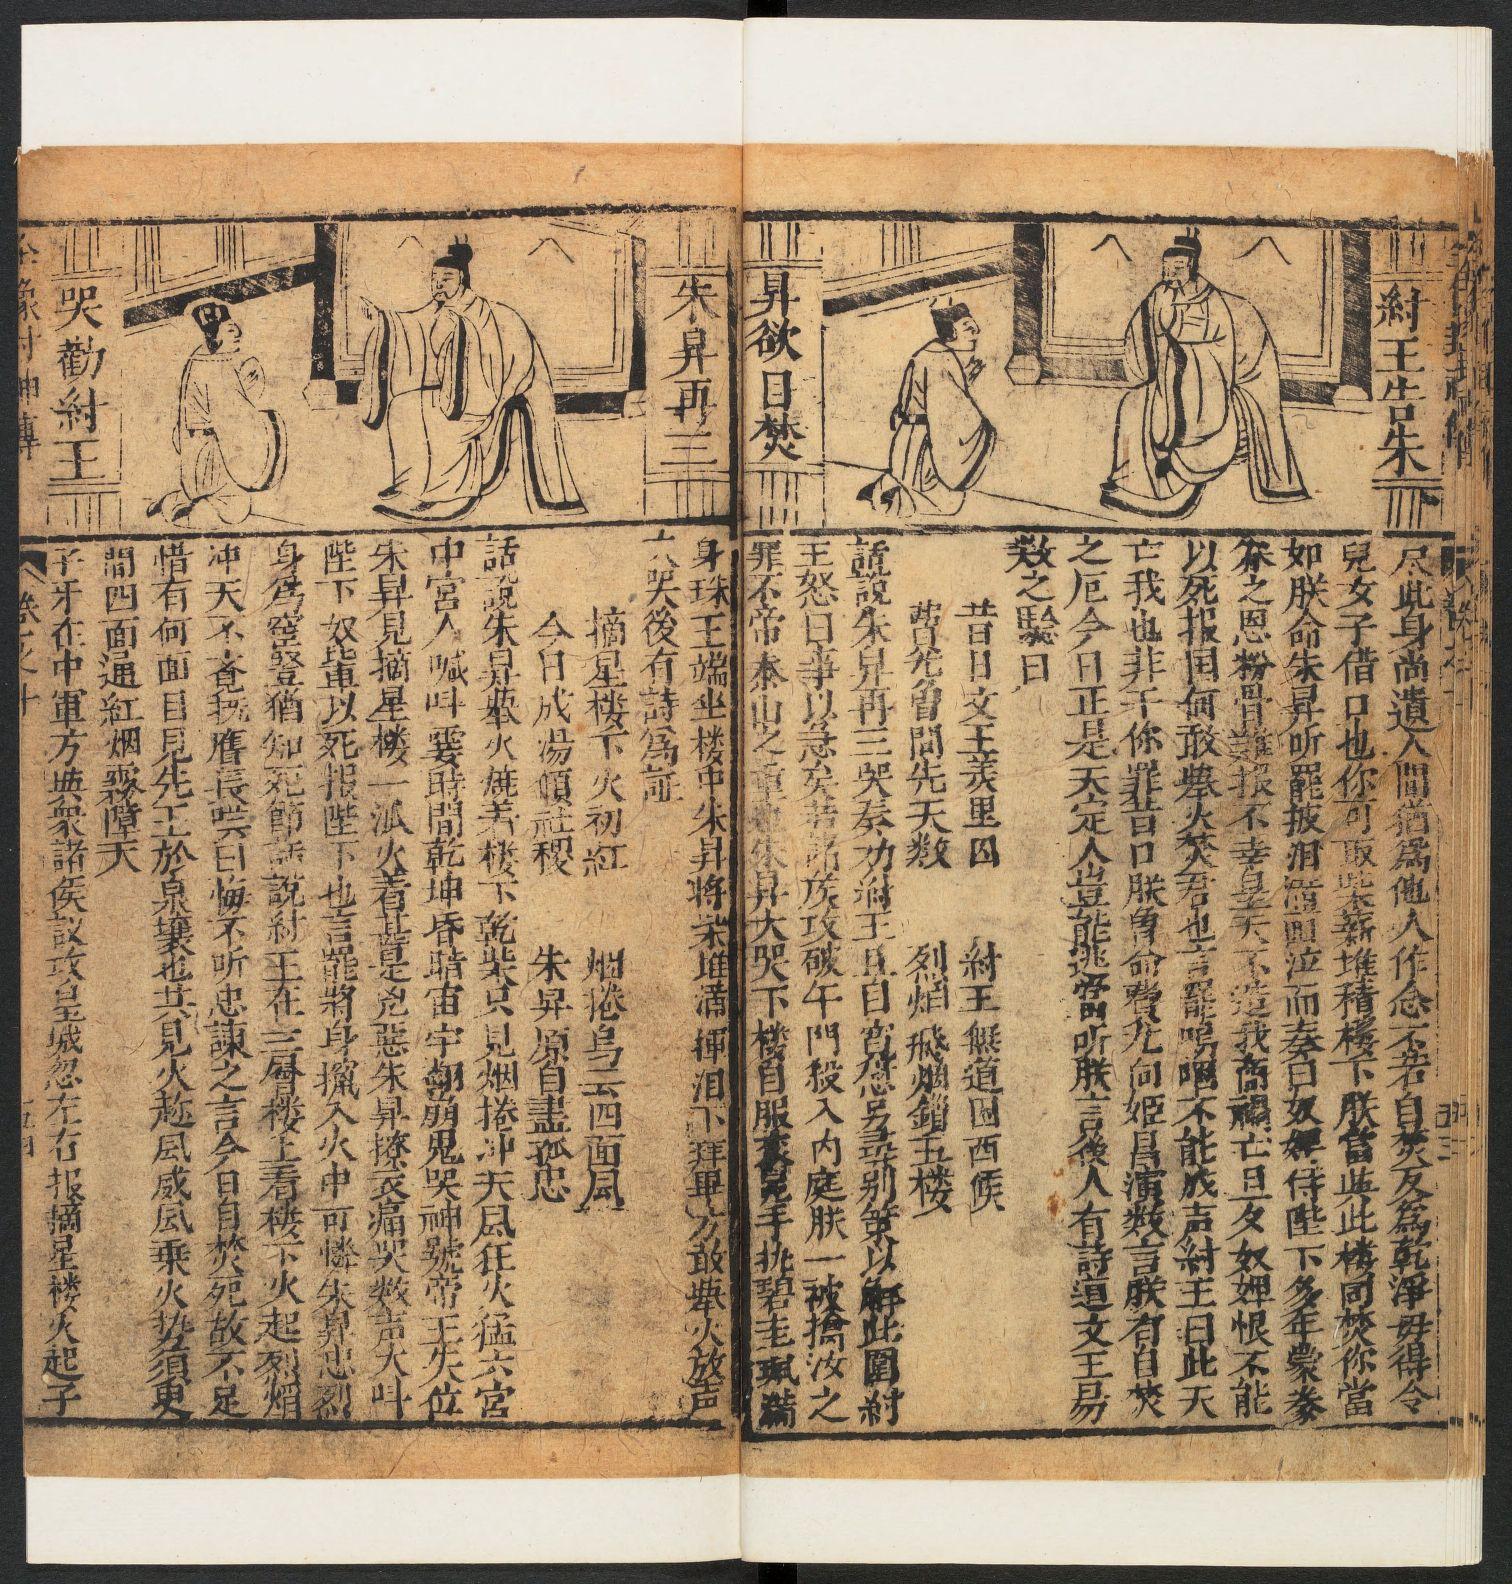 紂王告朱
昇欲日焚
尽此身尚遺人間猶為他人作念不若自焚反為乾淨毋得令
兒女子借口也你可取柴薪堆積楼下朕當與此楼同焚你當
如朕命朱昇听罷披泪滿面泣而奏曰奴婢侍陛下多年蒙豢
养之恩粉骨難报不幸皇天不造我商禍亡旦夕奴婢恨不能
以死报国何敢举火焚君也言罷嗚咽不能成声紂王曰此天
亡我也非干你罪昔日朕曾命費尤向姬昌演数言朕有自焚
之厄今日正是天定人豈能逃當听朕言後人有詩道文王易
数之驗曰
昔日文王羑里囚　紂王無道困西候
費尤曾問先天数　列焰飛烟鎖玉楼
話說朱昇再三哭奏功紂王且自寬慰另尋別策以解此圍紂
王怒曰事以急矣若諸侯攻破午門殺入内庭朕一被擒汝之
罪不啻泰山之重也朱昇大哭下楼自服衮冕手执碧圭珮滿
朱昇再三
哭勸紂王
身珠王端坐楼中朱昇將柴堆滿揮泪下拜畢方敢举火放声
大哭後有詩為証
摘星楼下火初紅　烟捲乌云四面風
今日成湯傾社稷　朱昇原自盡孤忠
話說朱昇举火燒着楼下乾柴只見烟捲冲天風狂火猛六宮
中宮人喊叫霎時間乾坤昏暗宙宇翻崩鬼哭神號帝王失位
朱昇見摘星楼一派火着甚是兇惡朱昇撩衣痛哭数声大叫
陛下奴軰以死报陛下也言罷將身攛入火中可憐朱昇忠烈
身為宦豎猶知死節話說紂王在三層楼上看楼下火起烈焰
冲天不竟撫膺長嘆曰悔不听忠諫之言今日自焚死故不足
惜有何面目見先王於泉壤也共見火趂風威風乗火势須更
間四面通紅烟霧障天
子牙在中軍方與衆諸侯議攻皇城忽左右报摘星楼火起子